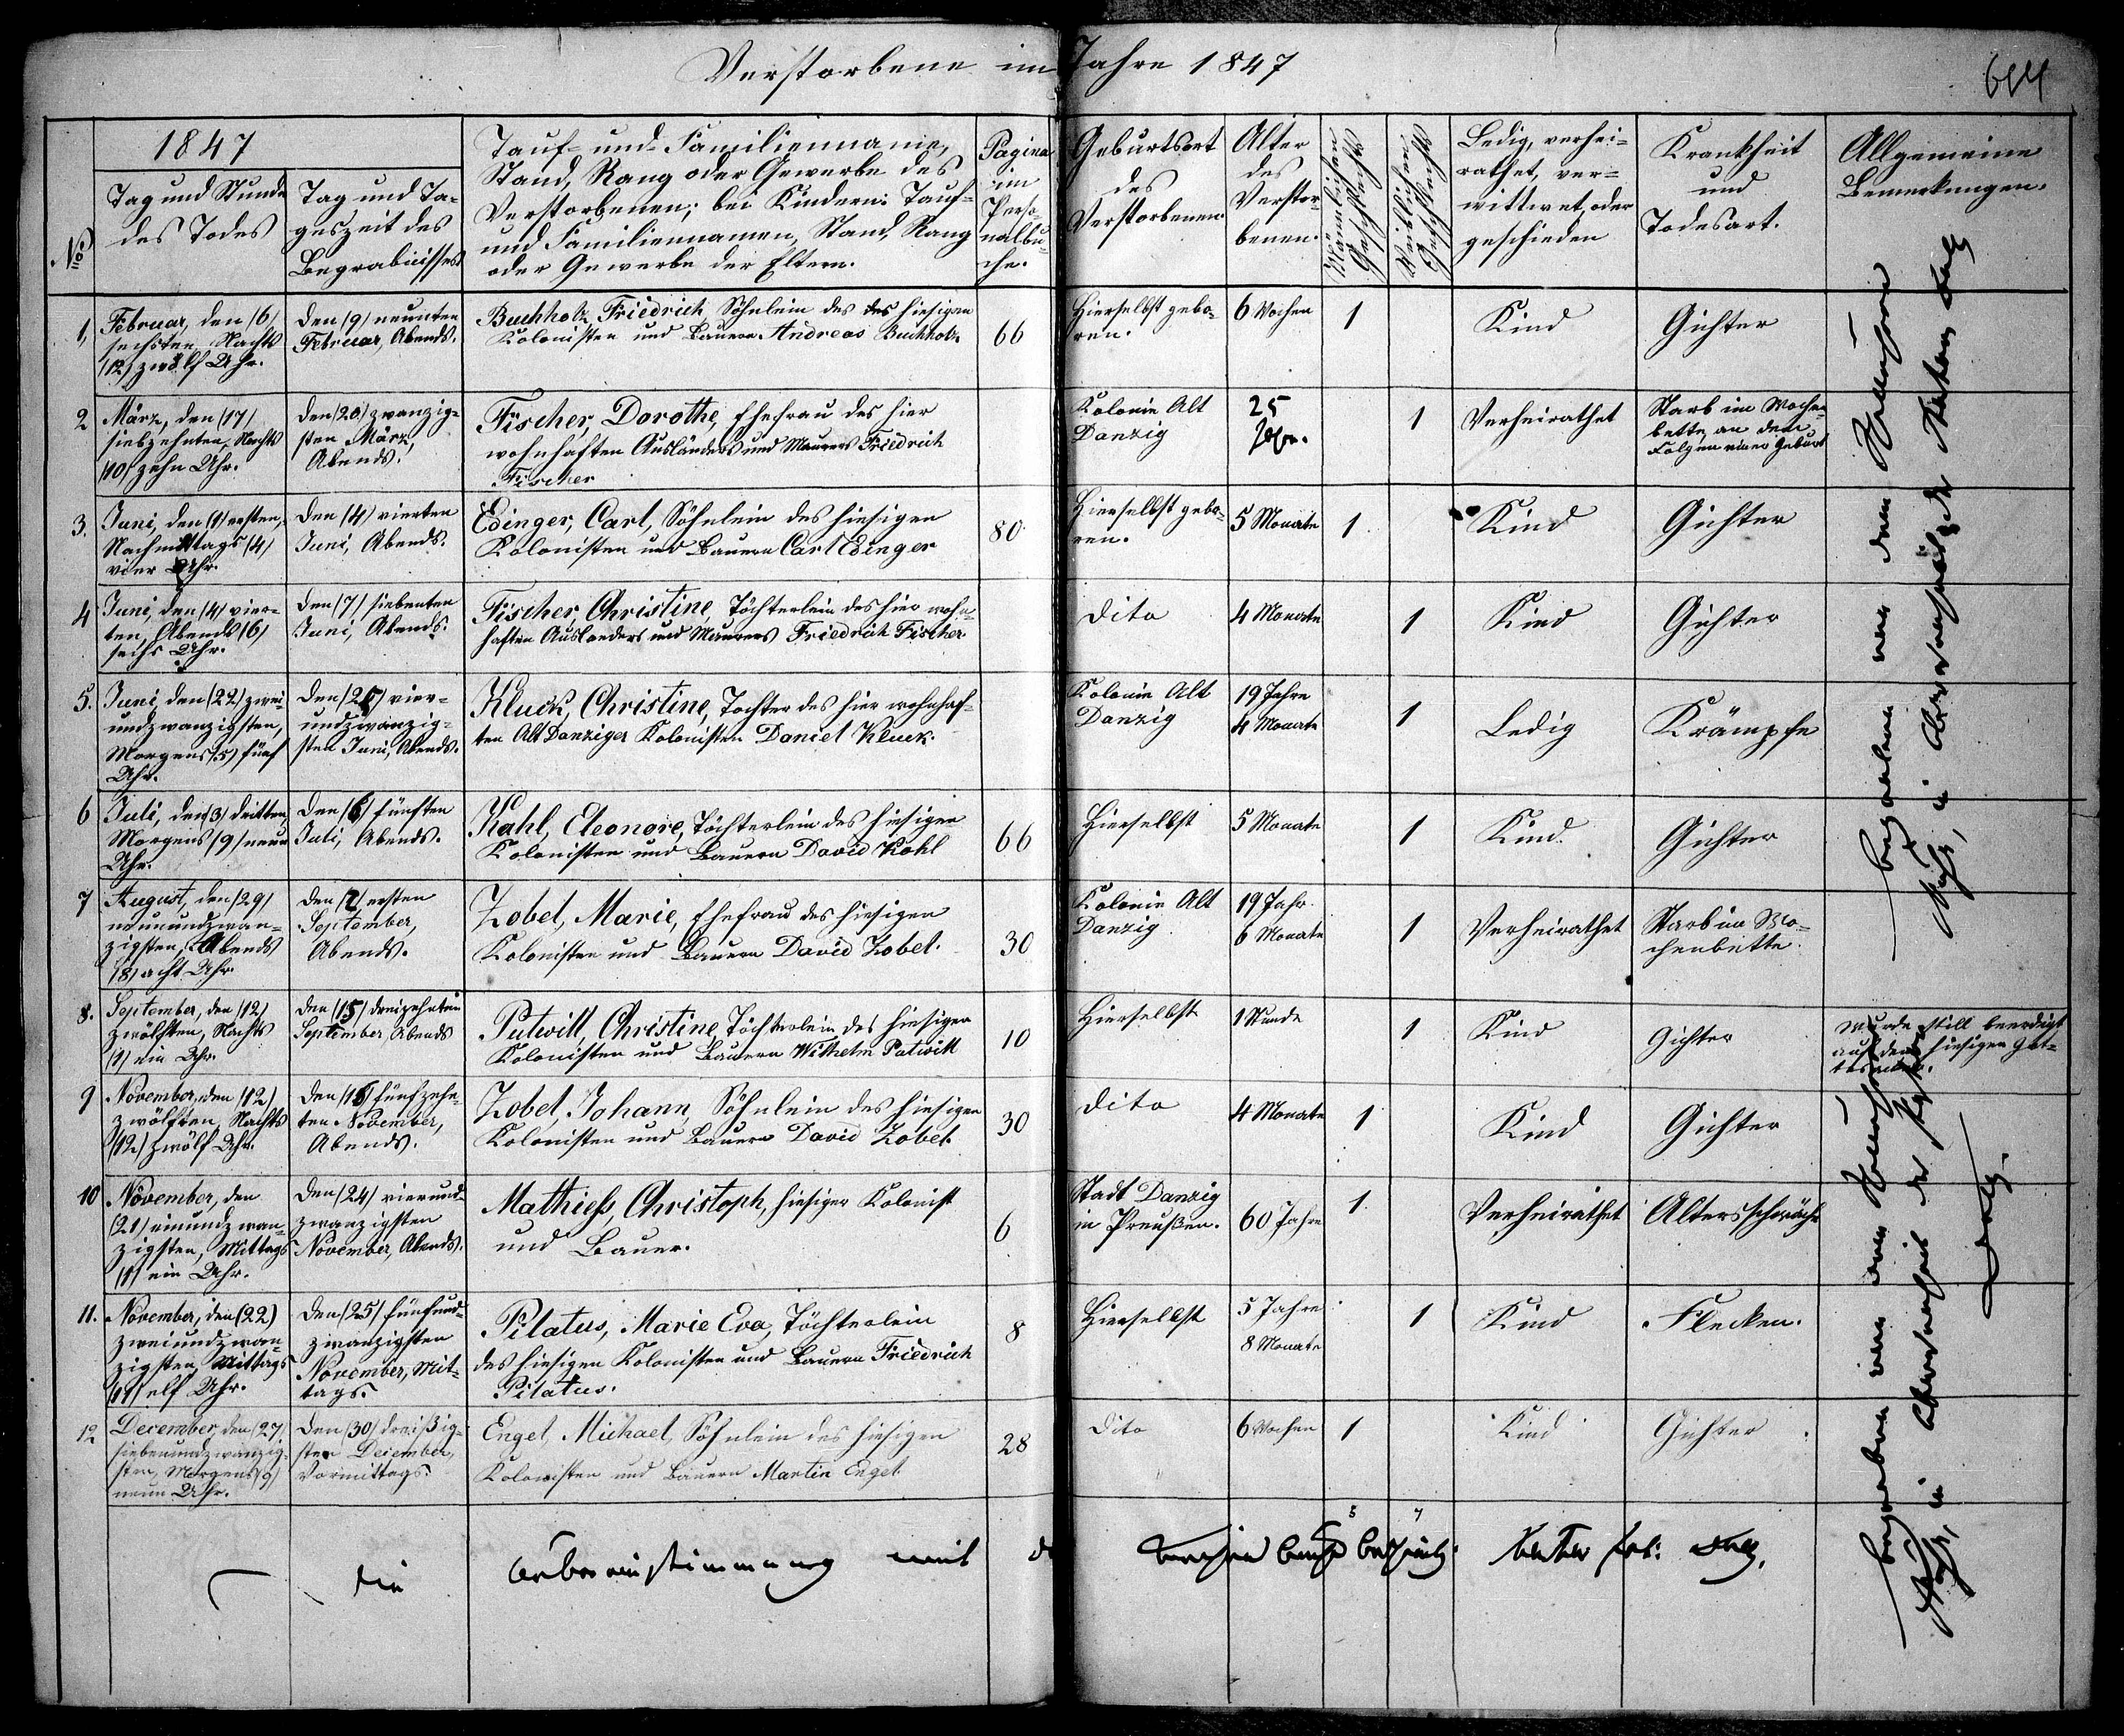 Verstorbene im Jahre 1847
644
No
1847
Tag und Stunde
des Todes
Tag und Ta-
geszeit des
Begräbnisses
Tauf- und Familienname,
Stand, Rang oder Gewerbe des
Verstorbenen; bei Kindern: Tauf-
und Familiennamen, Stand, Rang
oder Gewerbe der Eltern.
Pagina
im
Perso-
nalbu-
che.
Geburtsort
des
Verstorbenen.
Alter
des
Verstor-
benen.
Männlichen
Geschlechts
Weiblichen
Geschlechts
Ledig, verhei-
rathet, ver-
wittwet, oder
geschieden
Krankheit
und
Todesart.
Allgemeine
Bemerkungen.
1,
Februar, den /6/
sechsten, Nachts
/12/ zwölf Uhr.
Den /9/ neunten
Februar, Abends.
Buchholz, Friedrich, Söhnlein des des hiesigen
Kolonisten und Bauern Andreas Buchholz.
66
Hierselbst gebo-
ren.
6 Wochen
1
Kind
Gichter
2
März, den /17/
siebzehnten, Nachts
/10/ zehn Uhr.
Den /20/ zwanzig-
sten März,
Abends.
Fischer, Dorothe, Ehefrau des hier
wohnhaften Ausländers und Maurers Friedrich
Fischer
Kolonie Alt
Danzig
25
1
Verheirathet
Starb im Wochen-
bette, an den
Folgen einer Geburt
3.
Juni, den /1/ ersten,
Nachmittags /4/
vier Uhr.
Den /4/ vierten
Juni, Abends.
Edinger, Carl, Söhnlein des hiesigen
Kolonisten und Bauern Carl Edinger
80
Hierselbst gebo-
ren.
5 Monate
1
Kind
Gichter
4
Juni, den /4/ vier-
ten, Abends /6/
sechs Uhr.
Den /7/ siebenten
Juni, Abends.
Fischer, Christine, Töchterlein des hier wohn-
haften Auslanders und Maurers Friedrich Fischer.
dito
4 Monate
1
Kind
Gichter
5.
Juni, den /22/ zwei-
undzwanzigsten,
Morgens /5/ fünf
Uhr.
Den vier-
undzwanzig-
sten Juni, Abends.
Kluck, Christine, Tochter des hier wohnhaf-
ten Alt Danziger Kolonisten Daniel Kluck.
Kolonie Alt
Danzig
19 Jahre
4 Monate
1
Ledig
Krämpfe
6
Juli, den /3/ dritten,
Morgens /9/ neun
Uhr.
Den fünften
Juli, Abends.
Kahl, Eleonore, Töchterlein des hiesigen
Kolonisten und Bauern David Kahl
66
Hierselbst
5 Monate
1
Kind.
Gichter
7
August, den /29/
neunundzwan-
zigsten, Abends
/8/ acht Uhr.
Den ersten
September,
Abends.
Zobel, Marie, Ehefrau des hiesigen
Kolonisten und Bauern David Zobel.
30
Kolonie Alt
Danzig
19 Jahr
6 Monate
1
Verheirathet
Starb im Wo-
chenbette.
8.
September, den /12/
zwölften, Nachts
/1/ ein Uhr.
Den /15/ dreizehnten
September, Abends
Putwill, Christine, Töchterlein des hiesigen
Kolonisten und Bauern Wilhelm Putwill
10
Hierselbst
1 Stunde
1
Kind
Gichter
Wurde still beerdigt
auf dem hiesigen Got-
tesacker.
9
November, den /12/
zwölften, Nachts
/12/ zwölf Uhr.
Den fünfzehn-
ten November,
Abends.
Zobel, Johann, Söhnlein des hiesigen
Kolonisten und Bauern David Zobel.
30
dito
4 Monate
1
Kind
Gichter
10
November, den
/21/ einundzwan-
zigsten, Mittags
/1/ ein Uhr.
Den /24/ vierund-
zwanzigsten
November, Abends.
Mathiess, Christoph, hiesiger Kolonist
und Bauer.
6
Stadt Danzig
in Preußen.
60 Jahre
1.
Verheirathet
Altersschwäche
11.
November, den /22/
zweiundzwan-
zigsten, Mittags
/11/ elf Uhr.
Den /25/ fünfund-
zwanzigsten
November, Mit-
tags.
Pilatus, Marie Eva, Töchterlein
des hiesigen Kolonisten und Bauern Friedrich
Pilatus.
8
Hierselbst
5 Jahre
8 Monate
1
Kind
Flecken.
12
December, den /27/
siebenundzwanzig-
sten, Morgens /9/
neun Uhr.
Den /30/ dreißig-
sten December,
Vormittags.
Engel, Michael, Söhnlein des hiesigen
Kolonisten und Bauern Martin Engel.
28
dito
6 Wochen
1
Kind
Gichter
5 7
die Uebereinstimmung mit